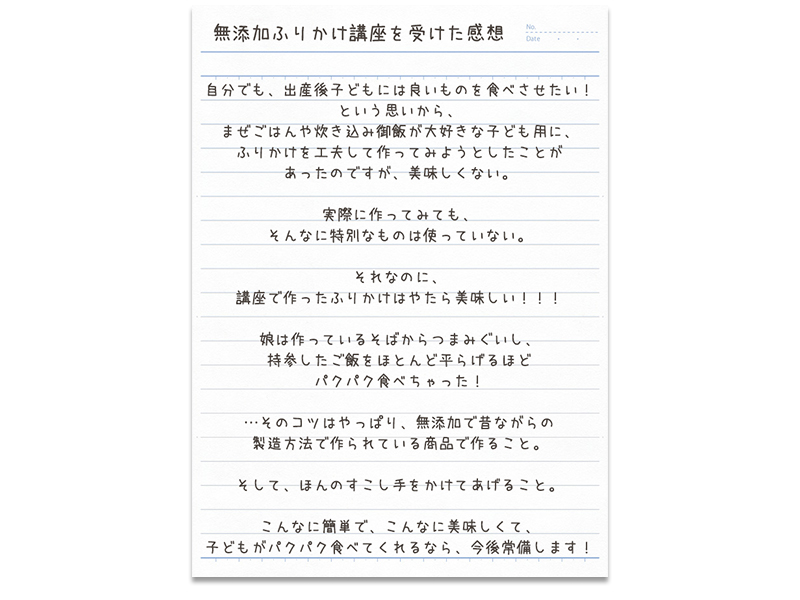 無添加ふりかけ講座を受けた感想
No.
Date
自分でも、出産後子どもには良いものを食べさせたい！
という思いから、
まぜごはんや炊き込み御飯が大好きな子ども用に、
ふりかけを工夫して作ってみようとしたことが
あったのですが、美味しくない。
実際に作ってみても、
そんなに特別なものは使っていない。
それなのに、
講座で作ったふりかけはやたら美味しい！！！
娘は作っているそばからつまみぐいし、
持参したご飯をほとんど平らげるほど
パクパク食べちゃった！
…そのコツはやっぱり、無添加で昔ながらの
製造方法で作られている商品で作ること。
そして、ほんのすこし手をかけてあげること。
こんなに簡単で、こんなに美味しくて、
子どもがパクパク食べてくれるなら、今後常備します！